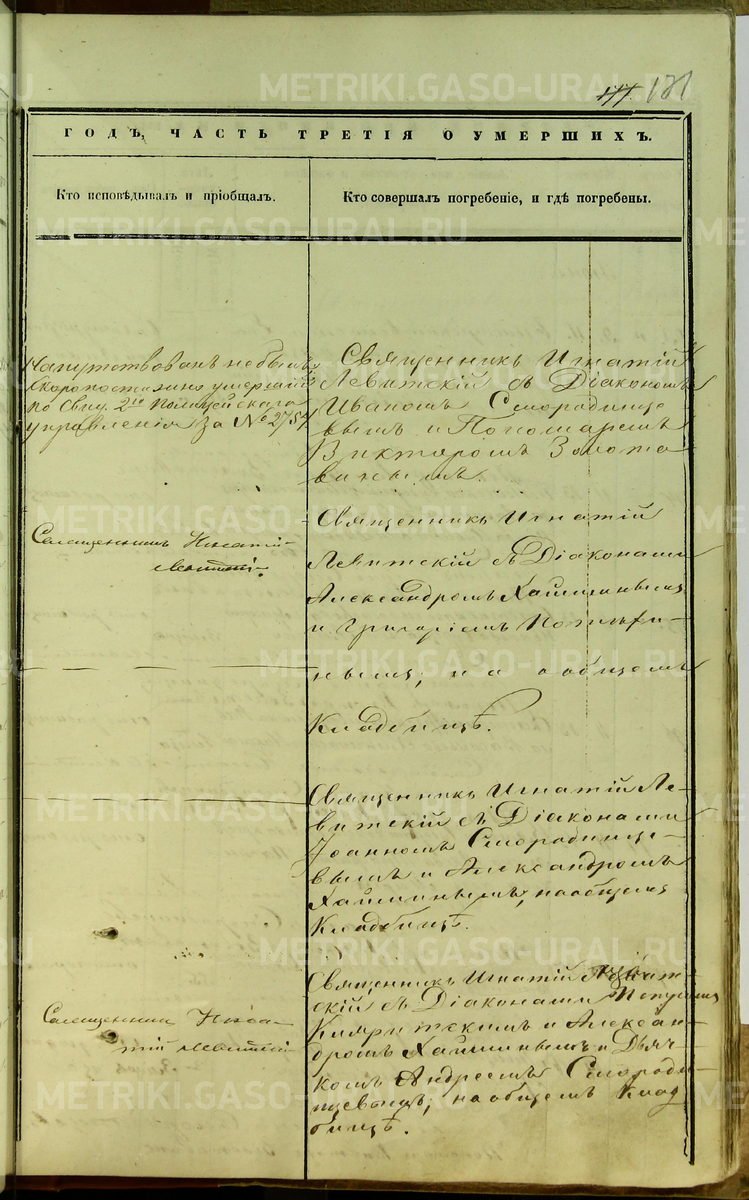 METRIKI.GASO-URAL.RU
177. 121
ГОДЪ, ЧАСТЬ ТРЕТІЯ О УМЕРШИХЪ.
Кто исповѣдывалъ и пріобщалъ.
Кто совершалъ погребеніе, и гдѣ погребены.
Напутствованъ не былъ
скоропостижно умершій
по свид. 2го Полицейскаго
управленія за №
Священникъ Игнатій
Левитскій съ Діакономъ
Иваномъ Смородинце
вымъ и Пономаремъ
Викторомъ Золота
винымъ.
Священникъ Игнатій
Левитскій
Священникъ Игнатій
Левитскій съ Діаконами
Александромъ Хайминымъ
и Григоріемъ
нымъ, на общемъ
Кладбищѣ.
Священникъ Игнатій Ле-
витскій съ Діаконами
Іоанномъ Смородинце-
вымъ и Александромъ
Хайминымъ, на общемъ
Кладбищѣ.
Священникъ Игна-
тій Левитскій
Священникъ Игнатій Левит-
скій съ Діаконами Петромъ
и Алексан-
дромъ Хайминымъ и Дьяч-
комъ Андреемъ Смороди-
нцевымъ, на общемъ Клад
бищѣ.